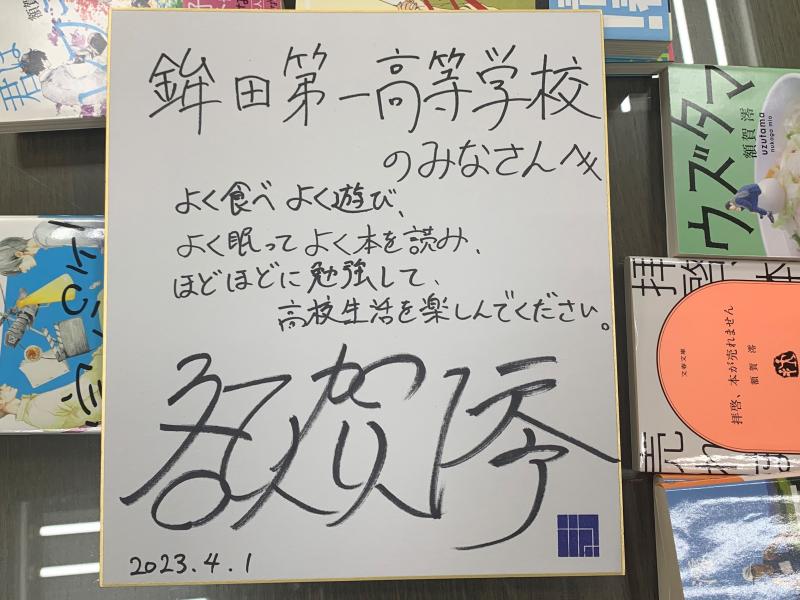 鉾田第一高等学校
のみなさんへ
よく食べ よく遊び、
よく眠って よく本を読み、
ほどほどに勉強して、
高校生活を楽しんでください。
額賀澪
2023.4.1
ウズタマ
額賀 澪
uzutama
nukaga mio
文春文庫
拝啓、本が売れません
額賀 澪
君は